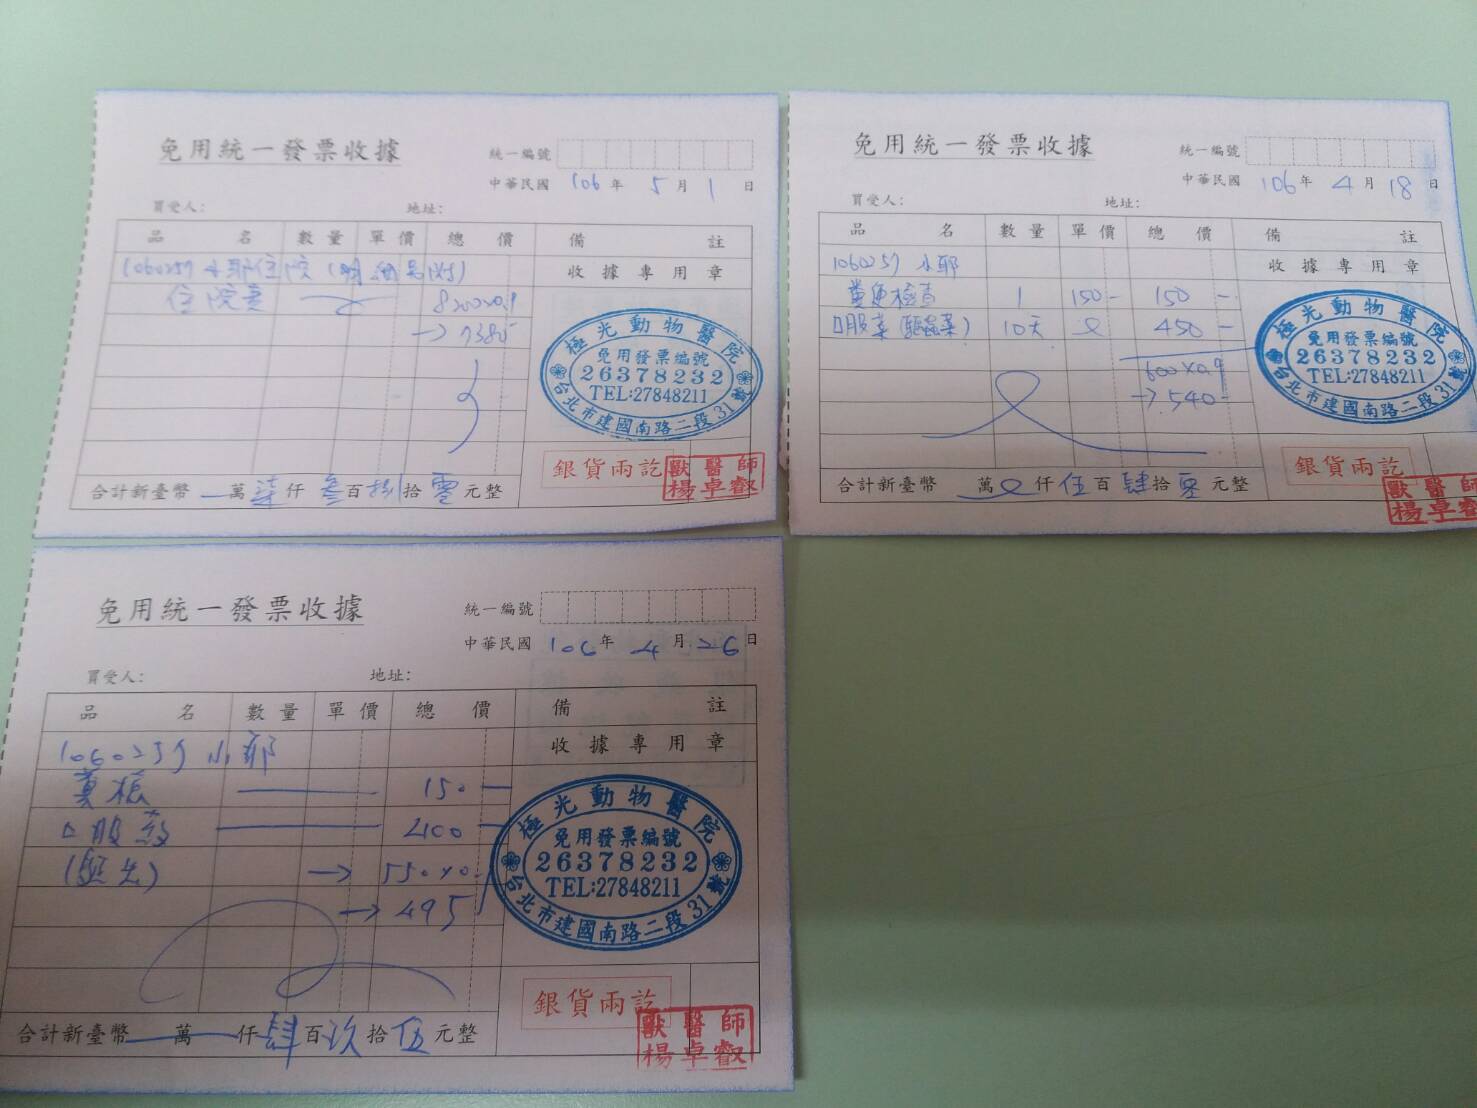 免用統一發票收據
統一編號
中華民國 106年 5月 1日
買受人: 地址:
品名 數量 單價 總價 備註
1060257 小耶住院(明細另附)
收據專用章
住院費 8200x0.9
→7380
極光動物醫院
免用發票編號
26378232
TEL:27848211
台北市建國南路二段31號
銀貨兩訖
獸醫師
楊卓叡
合計新臺幣 萬柒仟參百捌拾零元整
免用統一發票收據
統一編號
中華民國 106年 4月 18日
買受人: 地址:
品名 數量 單價 總價 備註
1060257 小耶
收據專用章
糞便檢查 1 150- 150-
口服藥(驅蟲藥) 10天 450-
600x0.9
→540-
極光動物醫院
免用發票編號
26378232
TEL:27848211
台北市建國南路二段31號
銀貨兩訖
獸醫師
楊卓叡
合計新臺幣 萬仟伍百肆拾零元整
免用統一發票收據
統一編號
中華民國 106年 4月 26日
買受人: 地址:
品名 數量 單價 總價 備註
1060257 小耶
收據專用章
糞檢 150-
口服藥 400-
→ 550x0.
→ 495
極光動物醫院
免用發票編號
26378232
TEL:27848211
台北市建國南路二段31號
銀貨兩訖
獸醫師
楊卓叡
合計新臺幣 萬仟肆百玖拾伍元整